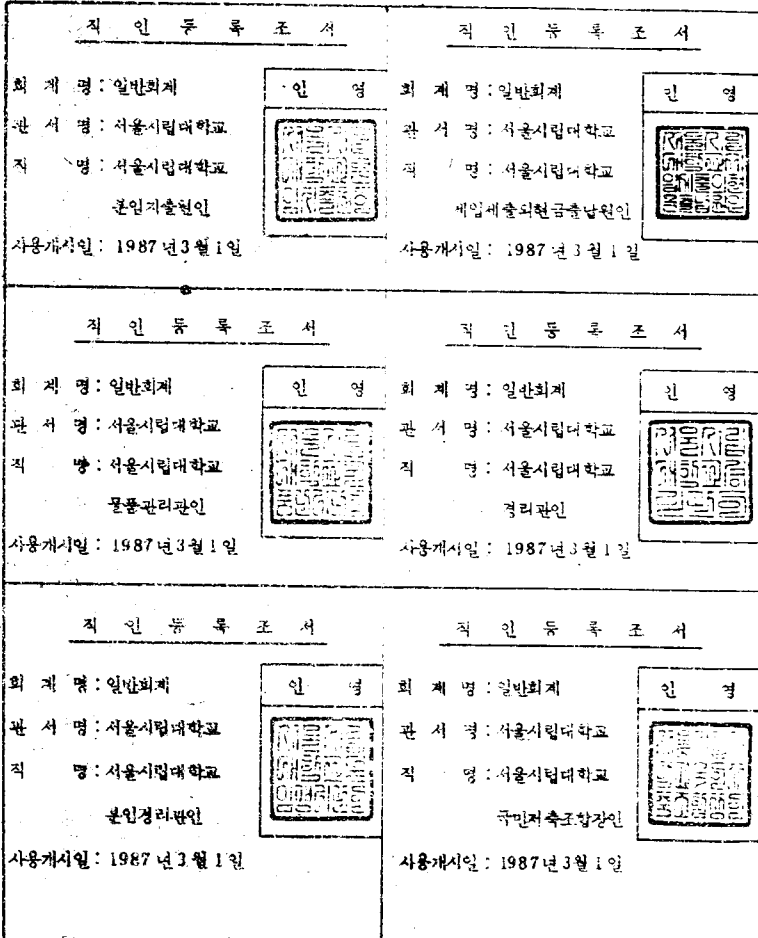 직 인 등 록 조 서
회 계 명 : 일반회계
인 영
관 서 명 : 서울시립대학교
직 명 : 서울시립대학교
분임지출원인
사용개시일 : 1987년 3월 1일
직 인 등 록 조 서
회 계 명 : 일반회계
인 영
관 서 명 : 서울시립대학교
직 명 : 서울시립대학교
세입세출외현금출납원인
사용개시일 : 1987년 3월 1일
직 인 등 록 조 서
회 계 명 : 일반회계
인 영
관 서 명 : 서울시립대학교
직 명 : 서울시립대학교
물품관리관인
사용개시일 : 1987년 3월 1일
직 인 등 록 조 서
회 계 명 : 일반회계
인 영
관 서 명 : 서울시립대학교
직 명 : 서울시립대학교
경리관인
사용개시일 : 1987년 3월 1일
직 인 등 록 조 서
회 계 명 : 일반회계
인 영
관 서 명 : 서울시립대학교
직 명 : 서울시립대학교
분임경리관인
사용개시일 : 1987년 3월 1일
직 인 등 록 조 서
회 계 명 : 일반회계
인 영
관 서 명 : 서울시립대학교
직 명 : 서울시립대학교
국민저축조합장인
사용개시일 : 1987년 3월 1일